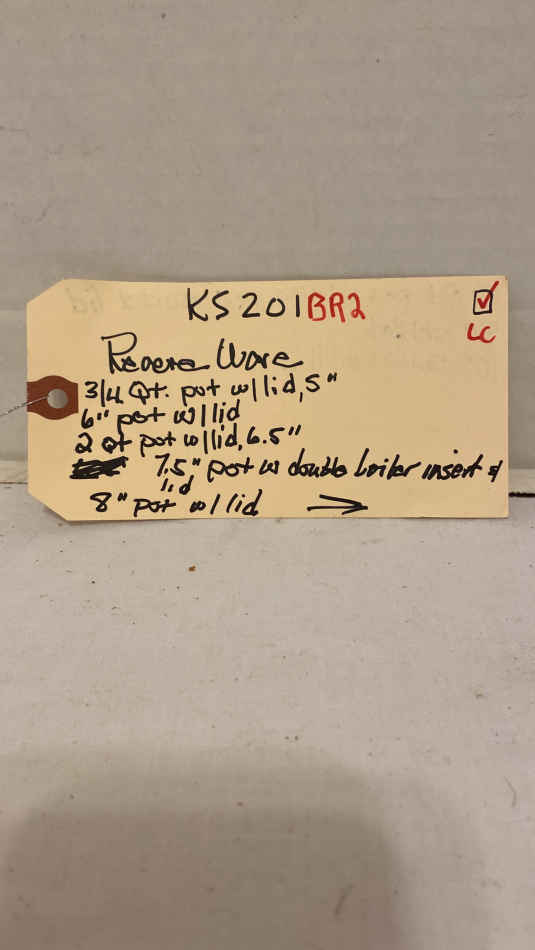 KS201BR2
LC
Revere Ware
3/4 Qt. pot w/lid, 5"
6" pot w/lid
2 Qt pot w/lid, 6.5"
7.5" pot w double boiler insert &
lid
8" pot w/lid